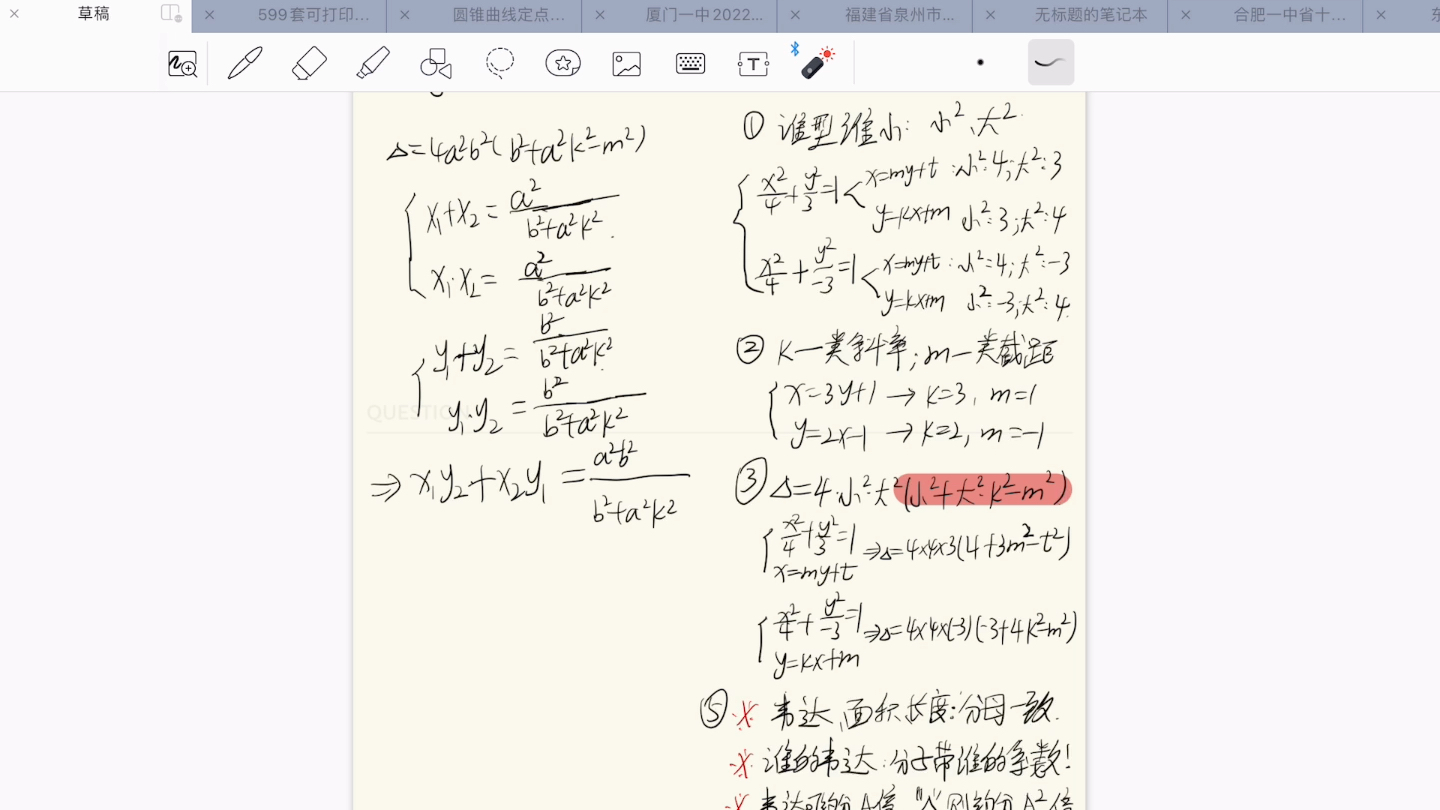 草稿
599套可打印...
圆锥曲线定点...
厦门一中2022...
福建省泉州市...
无标题的笔记本
合肥一中省十...
Δ=4a²b²(b²+a²k²-m²)
x₁+x₂= a²/(b²+a²k²)
x₁·x₂= a²/(b²+a²k²)
y₁+y₂= b²/(b²+a²k²)
QUESTION
y₁·y₂= b²/(b²+a²k²)
⇒x₁y₂+x₂y₁= a²b²/(b²+a²k²)
① 谁型谁小: 小²、大²
x²/4+y²/3=1 x=my+t:小²:4;大²:3
y=kx+m 小²:3;大²:4
x²/4+y²/-3=1 x=my+t:小²=4;大²:-3
y=kx+m 小²:-3;大²:4
② k—类斜率;m—类截距
x=3y+1→k=3, m=1
y=2x-1→k=2, m=-1
③ Δ=4·小²·大²(小²+大²·k²-m²)
x²/4+y²/3=1 ⇒Δ=4×4×3(4+3m²-t²)
x=my+t
x²/4+y²/-3=1 ⇒Δ=4×4×(-3)(-3+4k²-m²)
y=kx+m
⑤ 韦达、面积、长度:分母一致.
谁的韦达:分子带谁的系数!